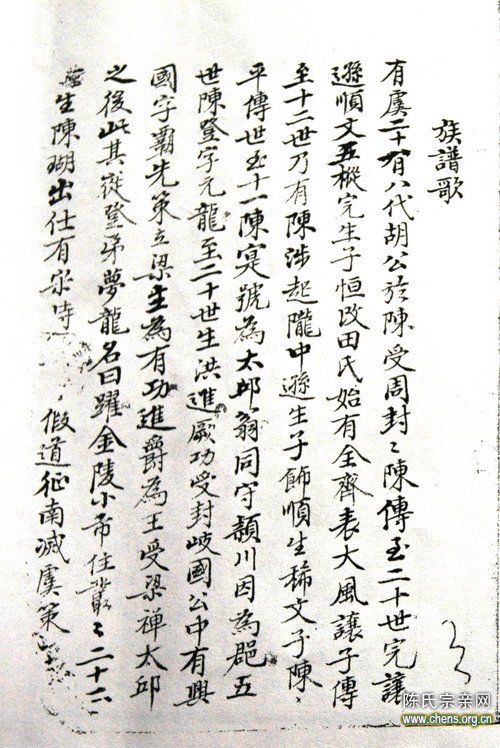 族譜歌
有虞二十有八代胡公於陳受周封〻陳傳至二十世完讓
遜順文五樅完生子恒改田氏始有全齊表大風讓子傳
至十二世乃有陳涉起隴中遜生子飾順生稀文子陳〻
平傳世至十一陳寔號為太邱翁同守頴川因為郡五
世陳登字元龍至二十世生洪進厥功受封岐國公中有興
國字霸先策立梁主為有功進爵為王受梁禪太邱
之後此其從登弟夢龍名曰躍金陵小帝住叢〻二十六
生陳瑚出仕有宋時 假道征南滅虞策
陈氏宗亲网
www.chens.org.cn